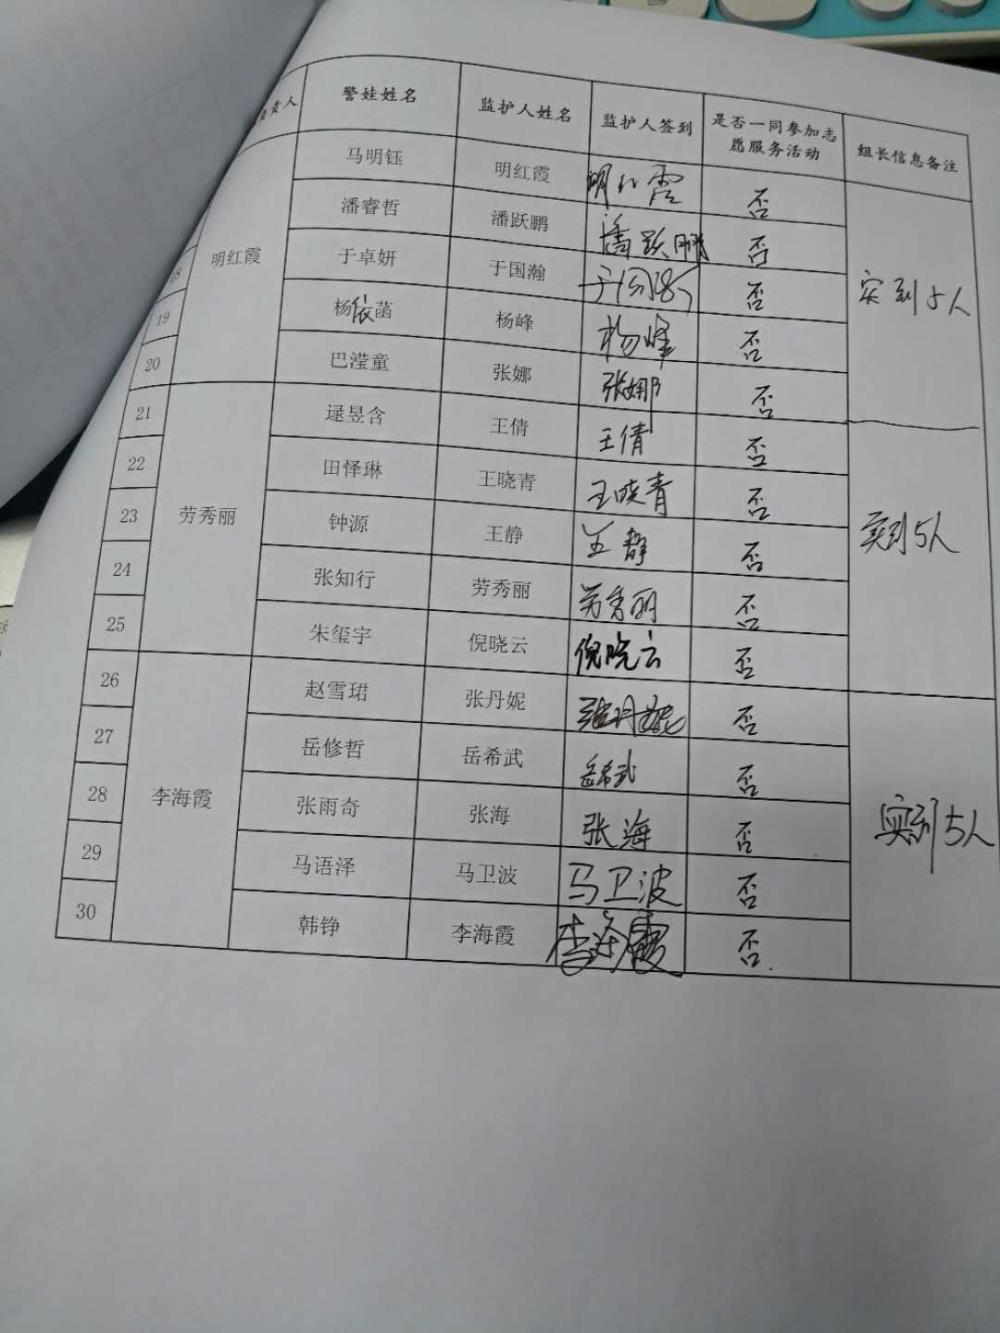 负责人 警娃姓名 监护人姓名 监护人签到 是否一同参加志愿服务活动 组长信息备注
马明钰 明红霞 明红霞 否
潘睿哲 潘跃鹏 潘跃鹏 否
18 明红霞 于卓妍 于国瀚 否 实到5人
19 杨依菡 杨峰 杨峰 否
20 巴滢童 张娜 张娜 否
21 逯昱含 王倩 王倩 否
22 田怿琳 王晓青 王晓青 否
23 劳秀丽 钟源 王静 王静 否 实到5人
24 张知行 劳秀丽 劳秀丽 否
25 朱玺宇 倪晓云 倪晓云 否
26 赵雪珺 张丹妮 张丹妮 否
27 岳修哲 岳希武 岳希武 否
28 李海霞 张雨奇 张海 张海 否 实到5人
29 马语泽 马卫波 马卫波 否
30 韩铮 李海霞 李海霞 否